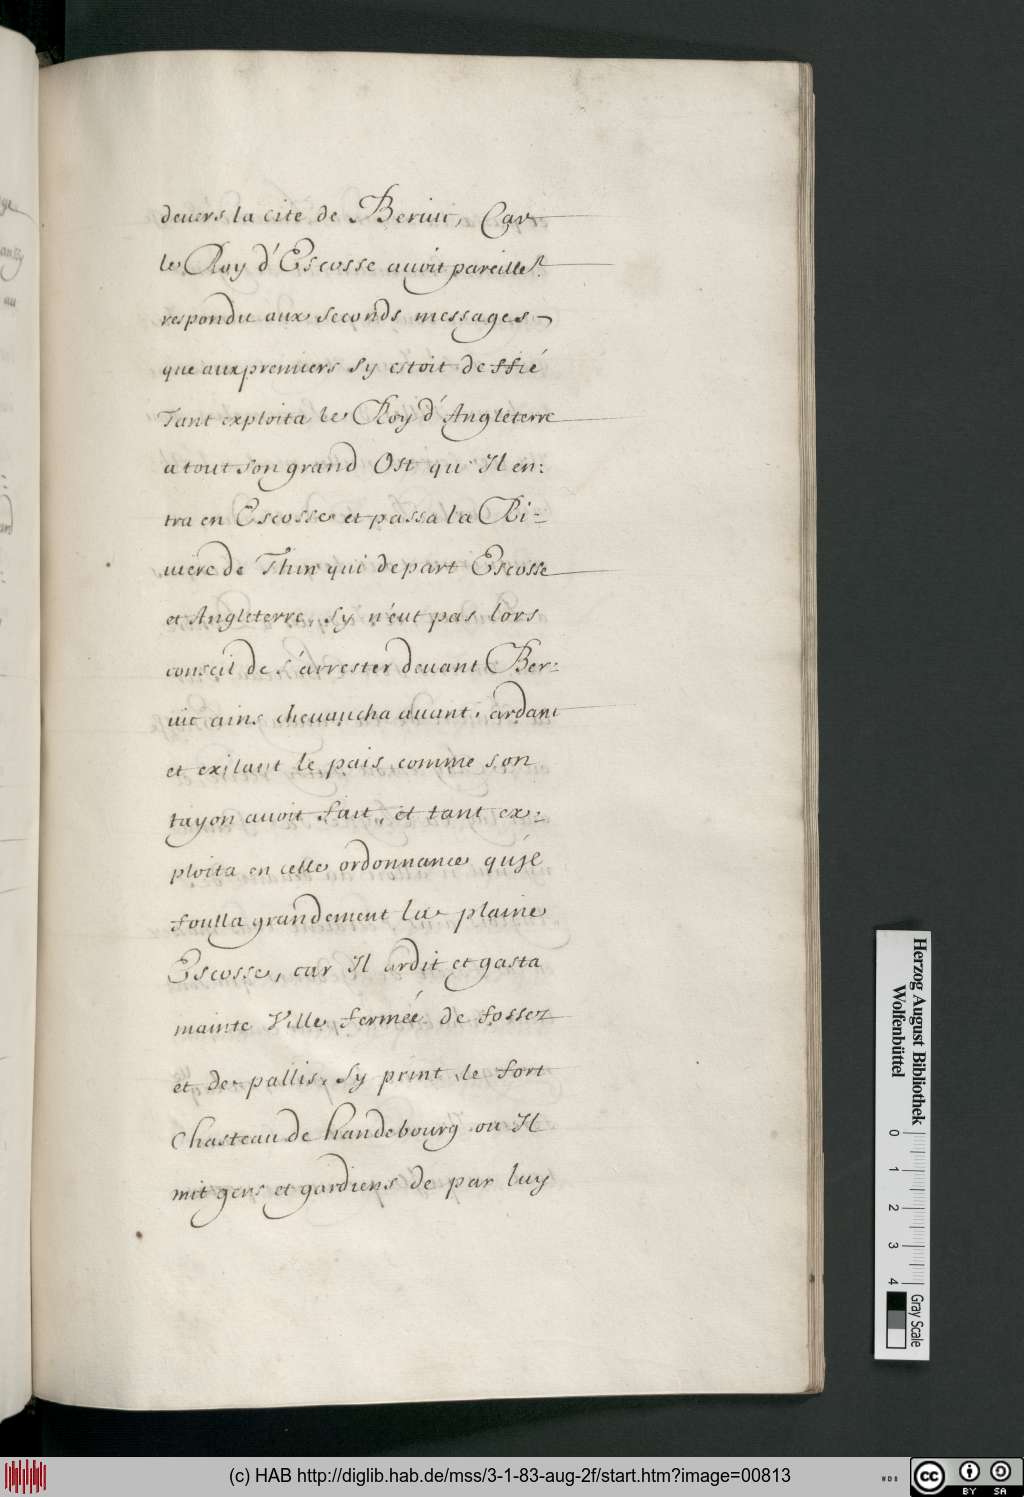 deuers la cité de Beruic, Car
le Roy d'Escosse auoit pareille.t
respondu aux seconds messages
que aux premiers sy estoit deffié
Tant exploita le Roy d'Angleterre
a tout son grand Ost qu'Il en:
tra en Escosse et passa la Ri-
uiere de Thin qui depart Escosse
et Angleterre, sy n'eut pas lors
conseil de s'arrester deuant Ber:
uic ains cheuaucha auant, ardant
et exilant le païs comme son
tayon auoit fait, et tant ex:
ploita en celle ordonnance qu'jl
foulla grandement la plaine
Escosse, car Il ardit et gasta
mainte Ville fermée de fossez
et de pallis, sy print le fort
Chasteau de handebourg ou Il
mit gens et gardiens de par luy
Herzog August Bibliothek
Wolfenbüttel
0 1 2 3 4
Gray Scale
(c) HAB http://diglib.hab.de/mss/3-1-83-aug-2f/start.htm?image=00813
cc BY SA